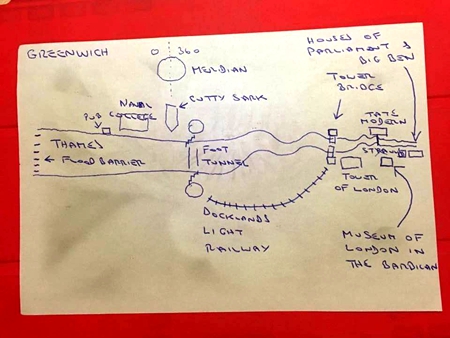 GREENWICH
0 360
MERIDIAN
HOUSES OF
PARLIAMENT &
BIG BEN
TOWER
BRIDGE
CUTTY SARK
NAVAL
COLLEGE
PUB
TATE
MODERN
THAMES
FLOOD BARRIER
FOOT
TUNNEL
TOWER
OF LONDON
DOCKLANDS
LIGHT
RAILWAY
MUSEUM OF
LONDON IN
THE BARBICAN